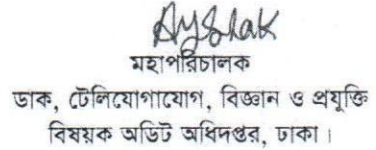 মহাপরিচালক
ডাক, টেলিযোগাযোগ, বিজ্ঞান ও প্রযুক্তি
বিষয়ক অডিট অধিদপ্তর, ঢাকা।